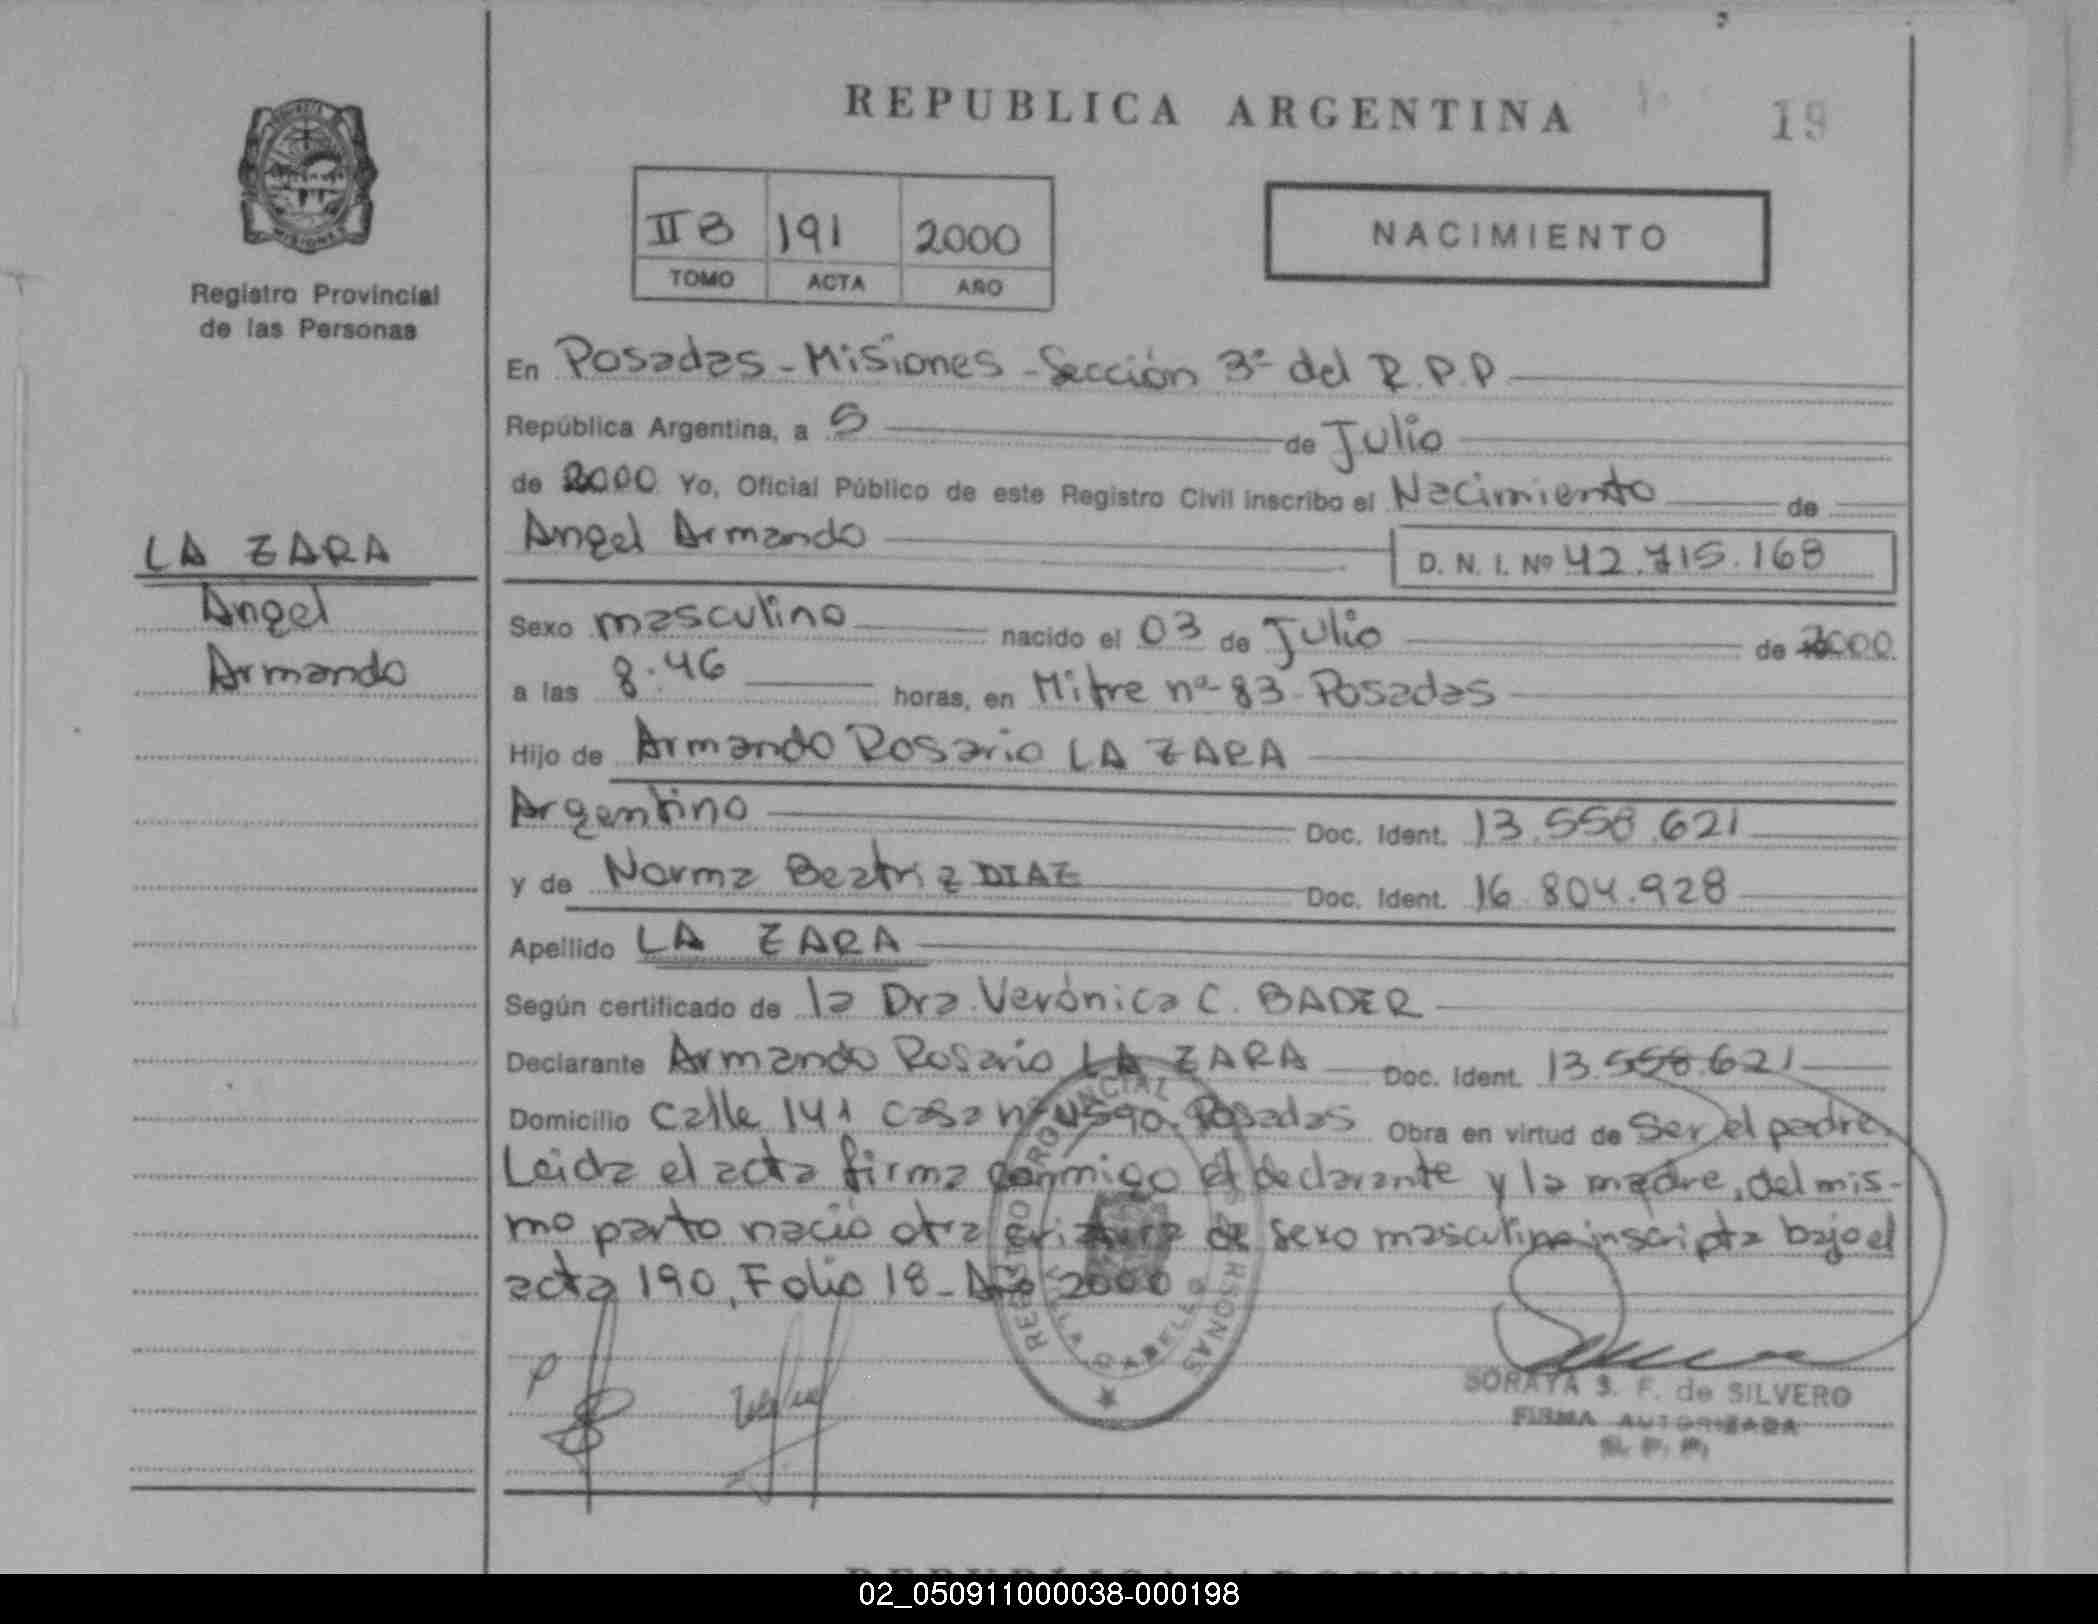 REPUBLICA ARGENTINA
19
MISIONES
Registro Provincial
de las Personas
II B 191 2000
TOMO ACTA AÑO
NACIMIENTO
En Posadas - Misiones - Sección 3ª del R.P.P
República Argentina, a 5 de Julio
de 2000 Yo, Oficial Público de este Registro Civil inscribo el Nacimiento de
Angel Armando D. N. I. Nº 42.715.168
LA ZARA
Angel
Armando
Sexo masculino nacido el 03 de Julio de 2000
a las 8.46 horas, en Mitre nº 83 - Posadas
Hijo de Armando Rosario LA ZARA
Argentino Doc. Ident. 13.558.621
y de Norma Beatriz DIAZ Doc. Ident. 16.804.928
Apellido LA ZARA
Según certificado de la Dra. Verónica C. BADER
Declarante Armando Rosario LA ZARA Doc. Ident. 13.558.621
Domicilio Calle 141 casa nº 4590. Posadas Obra en virtud de Ser el padre
Leida el acta firma conmigo el declarante y la madre, del mis-
mo parto nació otra criatura de sexo masculino inscripta bajo el
acta 190, Folio 18 - Año 2000
P
SORAYA S. F. de SILVERO
FIRMA AUTORIZADA
R. P. P.
REPUBLICA ARGENTINA
02_050911000038-000198